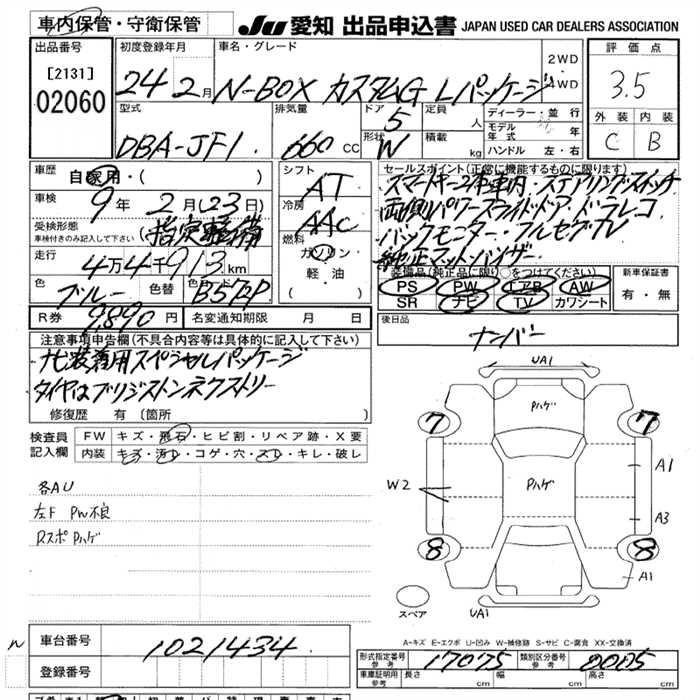 車内保管・守衛保管
JU 愛知 出品申込書 JAPAN USED CAR DEALERS ASSOCIATION
出品番号
[2131]
02060
初度登録年月
24 2月
車名・グレード
N-BOX カスタムG Lパッケージ
2WD
・
4WD
評価点
3.5
外装 内装
C B
型式
DBA-JF1.
排気量
660 cc
ドア
5
形状
W
定員
人
積載
kg
ディーラー・並行
モデル年式 年
ハンドル 左・右
車歴 自家用・( )
車検 9年 2月(23日)
受検形態
車検付きのみ記入して下さい
(指定整備)
走行 4万4千913km
色 ブルー 色替 B572P
シフト
AT
冷房
AAC
燃料
ガソリン・
軽・油
( )
セールスポイント(正常に機能するものに限ります)
スマートキー2 車内 ステアリングスイッチ
両側パワースライドドア ドラレコ
バックモニター フルセグTV
純正マットバイザー
装備品(純正品に限り○をつけてください)
PS PW エアB AW
SR ナビ TV カワシート
新車保証書
有・無
R券 9,890円 名変通知期限 月 日
後日品
ナンバー
注意事項申告欄(不具合内容等は具体的に記入して下さい)
セ装着用スペシャルパッケージ
タイヤはブリジストンネクストリー
修復歴 有 〔箇所 〕
検査員記入欄
FW キズ・飛石・ヒビ割・リペア跡・X要
内装 キズ・汚レ・コゲ・穴・スレ・キレ・破レ
各AU
左F PW不良
Rスポ Pハゲ
UA1
Pハゲ
7 7
A1
W2 Pハゲ
A3
8 8
A1
スペア
UA1
A-キズ E-エクボ U-凹み W-補修跡 S-サビ C-腐食 XX-交換済
N
車台番号 1021434
登録番号
形式指定番号 参考 17075 類別区分番号 参考 0005
車庫証明用 参考 長さ cm 幅 cm 高さ cm